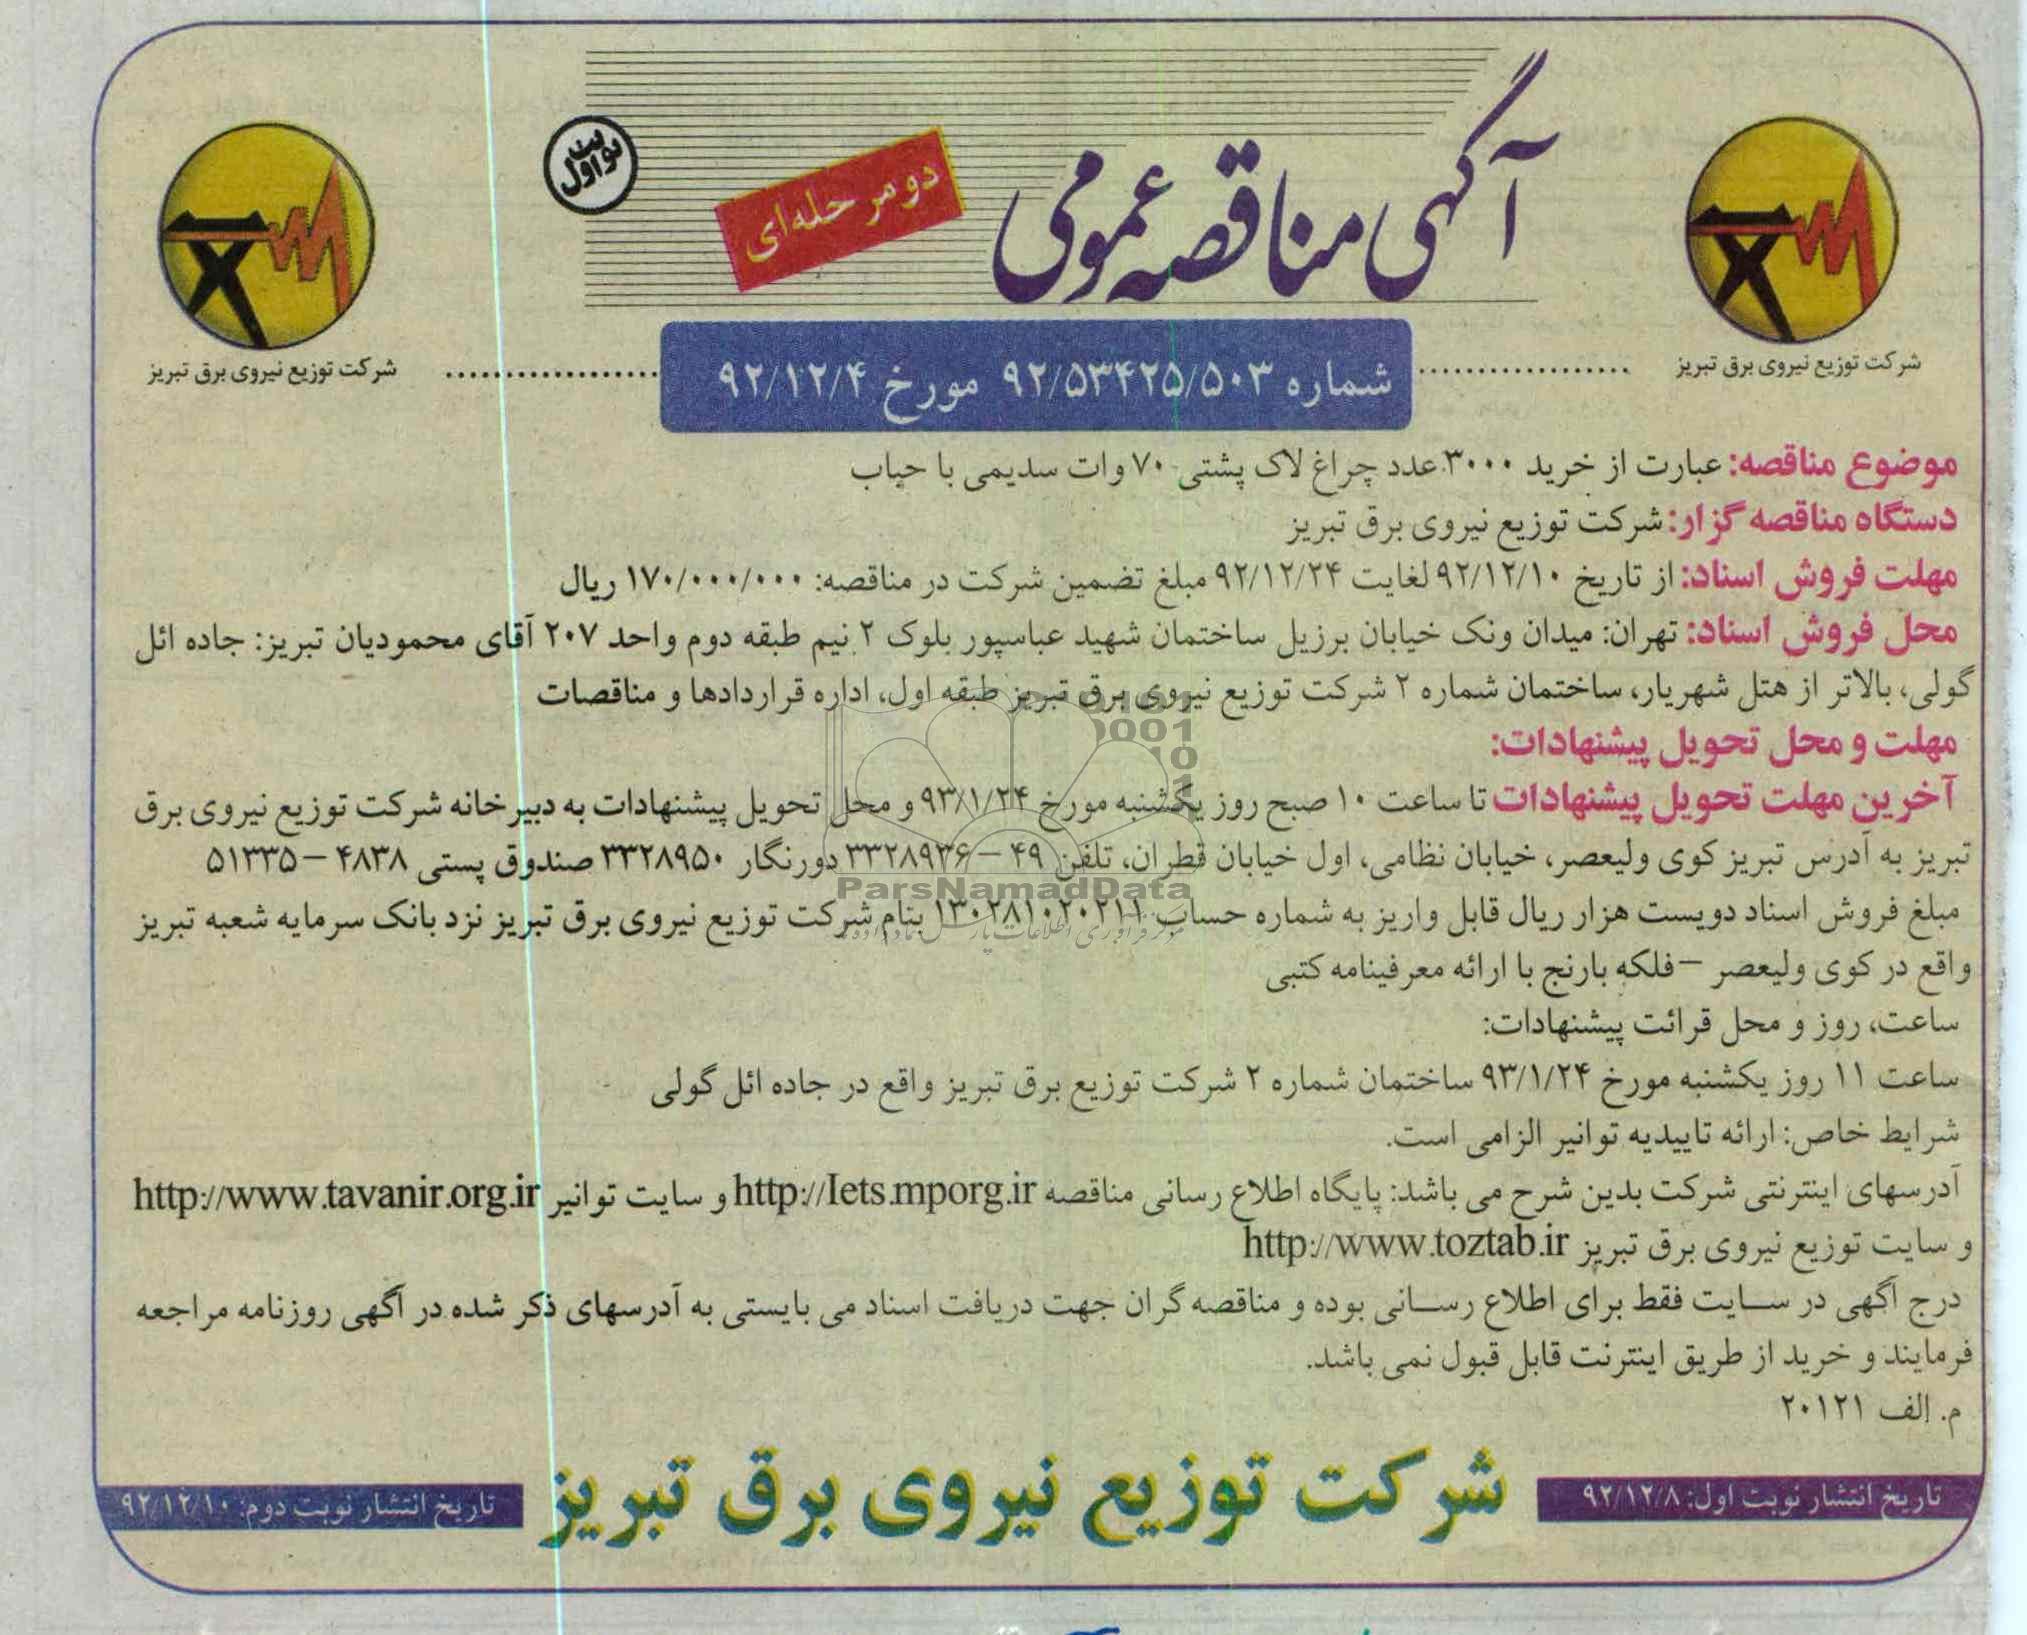 آگهی مناقصه عمومی
دو مرحله‌ای
نوبت اول
شرکت توزیع نیروی برق تبریز
شماره ۹۲/۵۳۴۲۵/۵۰۳ مورخ ۹۲/۱۲/۴
شرکت توزیع نیروی برق تبریز
موضوع مناقصه: عبارت از خرید ۳۰۰۰ عدد چراغ لاک پشتی ۷۰ وات سدیمی با حباب
دستگاه مناقصه گزار: شرکت توزیع نیروی برق تبریز
مهلت فروش اسناد: از تاریخ ۹۲/۱۲/۱۰ لغایت ۹۲/۱۲/۲۴ مبلغ تضمین شرکت در مناقصه: ۱۷۰/۰۰۰/۰۰۰ ریال
محل فروش اسناد: تهران: میدان ونک خیابان برزیل ساختمان شهید عباسپور بلوک ۲ نیم طبقه دوم واحد ۲۰۷ آقای محمودیان تبریز: جاده ائل
گولی، بالاتر از هتل شهریار، ساختمان شماره ۲ شرکت توزیع نیروی برق تبریز طبقه اول، اداره قراردادها و مناقصات
مهلت و محل تحویل پیشنهادات:
آخرین مهلت تحویل پیشنهادات تا ساعت ۱۰ صبح روز یکشنبه مورخ ۹۳/۱/۲۴ و محل تحویل پیشنهادات به دبیرخانه شرکت توزیع نیروی برق
تبریز به آدرس تبریز کوی ولیعصر، خیابان نظامی، اول خیابان قطران، تلفن ۴۹ – ۳۳۲۸۹۳۶ دورنگار ۳۳۲۸۹۵۰ صندوق پستی ۴۸۳۸ – ۵۱۳۳۵
مبلغ فروش اسناد دویست هزار ریال قابل واریز به شماره حساب ۱۳۰۲۸۱۰۲۰۲۱۱ بنام شرکت توزیع نیروی برق تبریز نزد بانک سرمایه شعبه تبریز
واقع در کوی ولیعصر – فلکه بارنج با ارائه معرفینامه کتبی
ساعت، روز و محل قرائت پیشنهادات:
ساعت ۱۱ روز یکشنبه مورخ ۹۳/۱/۲۴ ساختمان شماره ۲ شرکت توزیع برق تبریز واقع در جاده ائل گولی
شرایط خاص: ارائه تاییدیه توانیر الزامی است.
آدرسهای اینترنتی شرکت بدین شرح می باشد: پایگاه اطلاع رسانی مناقصه http://Iets.mporg.ir و سایت توانیر http://www.tavanir.org.ir
و سایت توزیع نیروی برق تبریز http://www.toztab.ir
درج آگهی در ســایت فقط برای اطلاع رســانی بوده و مناقصه گران جهت دریافت اسناد می بایستی به آدرسهای ذکر شده در آگهی روزنامه مراجعه
فرمایند و خرید از طریق اینترنت قابل قبول نمی باشد.
م. الف ۲۰۱۲۱
تاریخ انتشار نوبت اول: ۹۲/۱۲/۸
شرکت توزیع نیروی برق تبریز
تاریخ انتشار نوبت دوم: ۹۲/۱۲/۱۰
ParsNamadData